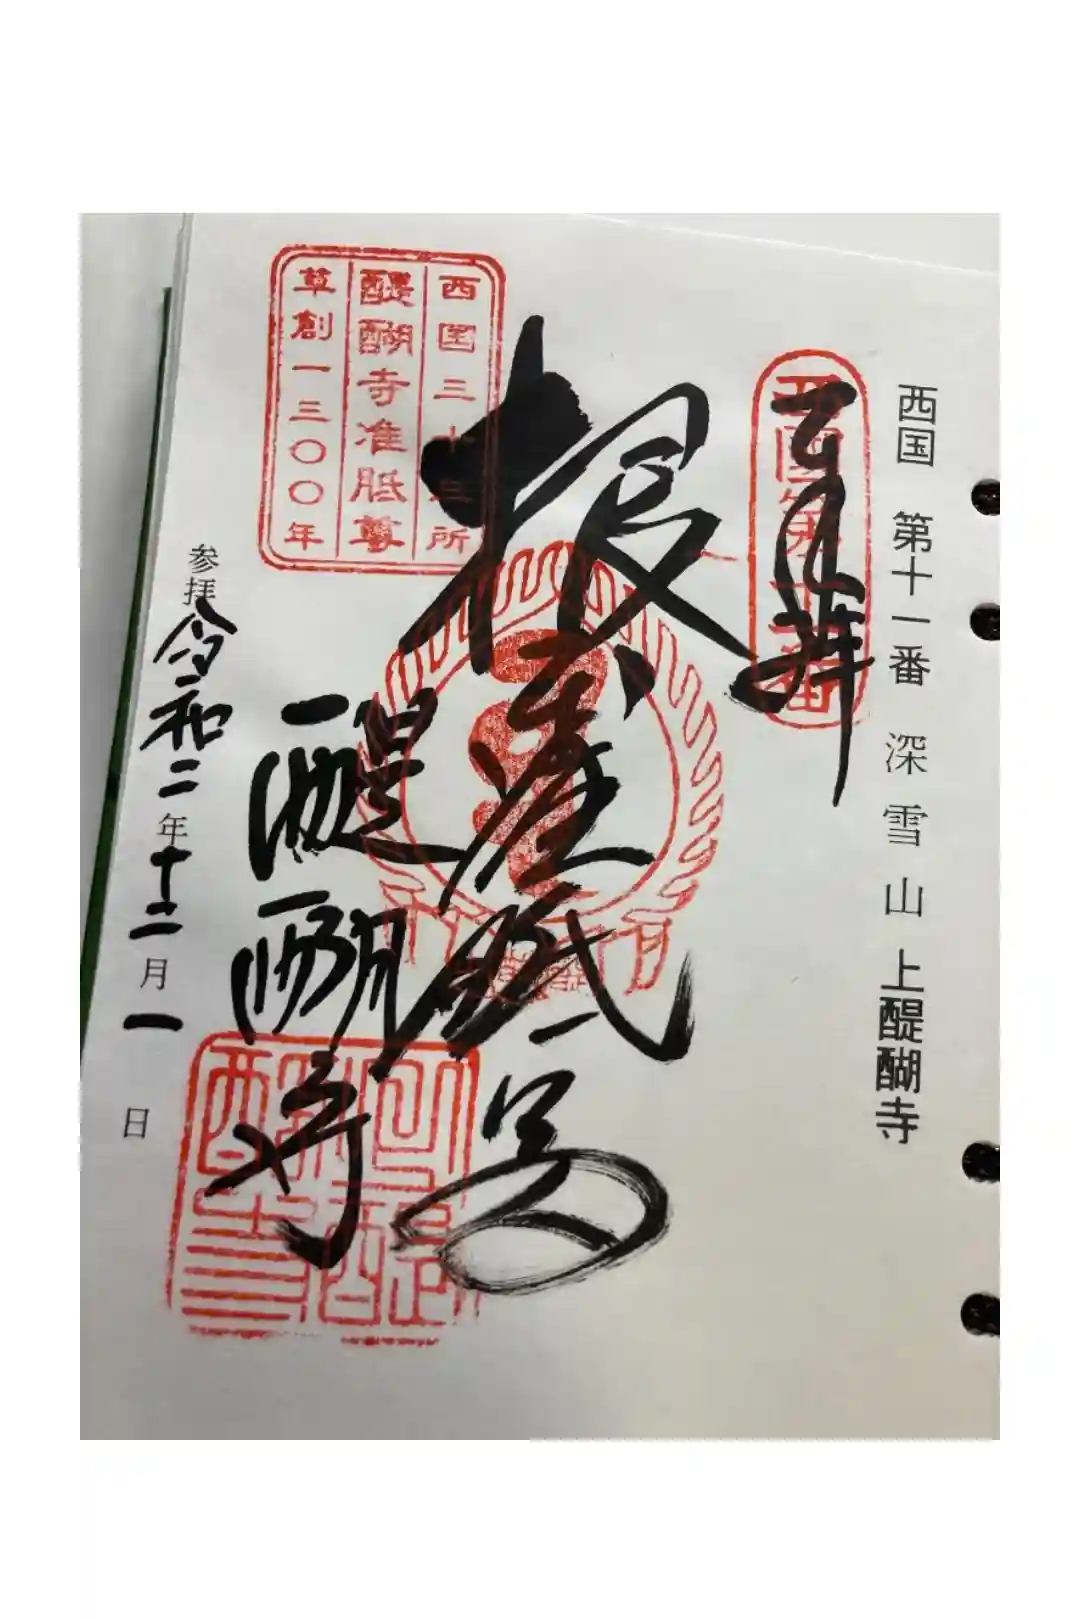 西国 第十一番 深雪山 上醍醐寺
奉拝
西国三十三所
醍醐寺准胝尊
草創一三〇〇年
根本准胝尊
醍醐寺
参拝 令和二年十二月一日